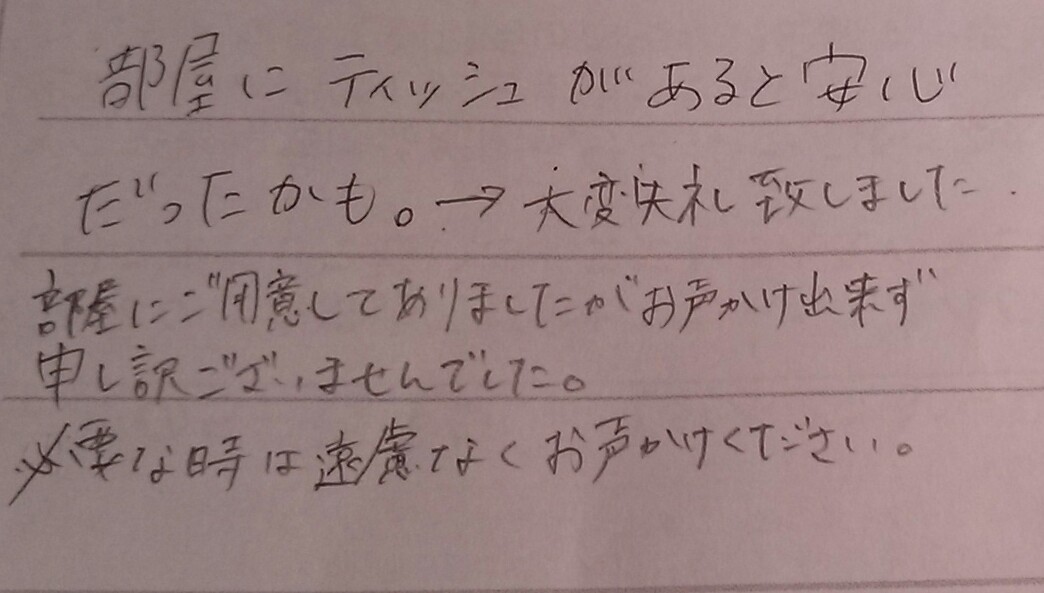 部屋にティッシュがあると安心
だったかも。→大変失礼致しました.
部屋にご用意してありましたがお声かけ出来ず
申し訳ございませんでした。
必要な時は遠慮なくお声かけください。